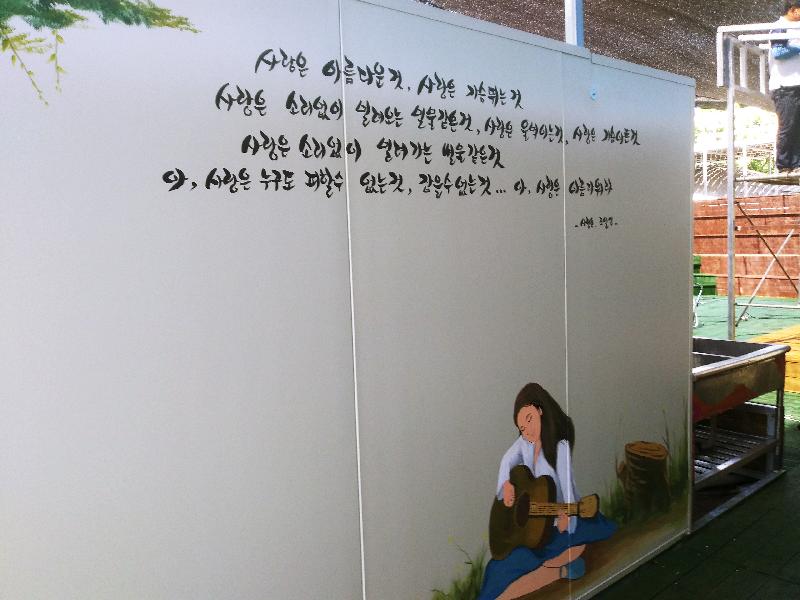 사랑은 아름다운것, 사랑은 가슴뛰는것
사랑은 소리없이 밀려오는 썰물같은것, 사랑은 움직이는것, 사랑은 가슴아픈것
사랑은 소리없이 밀려가는 썰물같은것
아, 사랑은 누구도 피할수 없는것, 감을수없는것... 아, 사랑은 아름다워라